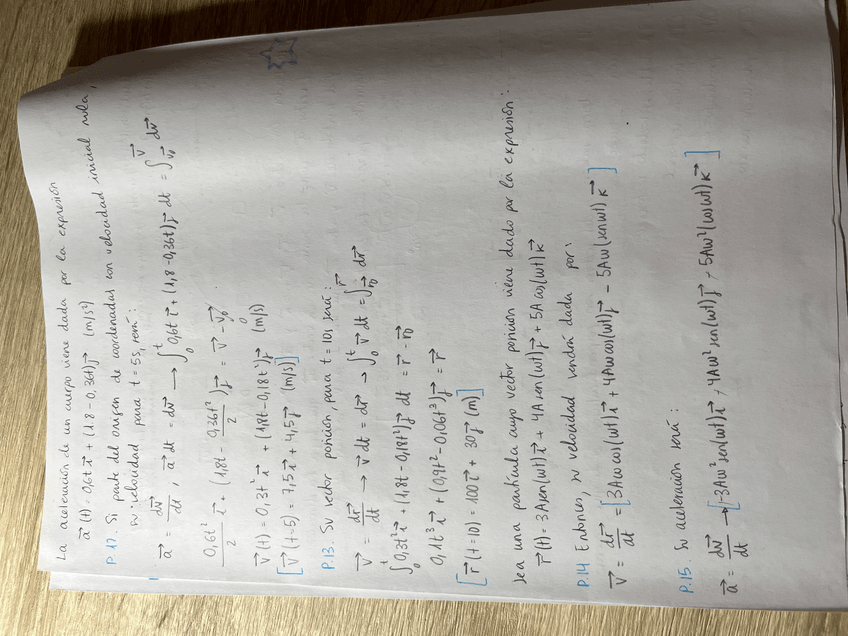 La aceleración de un cuerpo viene dada por la expresión
a⃗(t) = 0,6t i⃗ + (1.8 - 0,36t) j⃗ (m/s²)
P.17. Si parte del origen de coordenadas con velocidad inicial nula,
su velocidad para t = 5s, será:
a⃗ = dv⃗/dt , a⃗ dt = dv⃗ → ∫₀ᵗ 0,6t i⃗ + (1,8-0,36t) j⃗ dt = ∫_{v⃗₀}^{v⃗} dv⃗
0,6t²/2 i⃗ + (1,8t - 0,36t²/2) j⃗ = v⃗ - v⃗₀ 0
v⃗(t) = 0,3t² i⃗ + (1,8t-0,18t²) j⃗ (m/s)
[v⃗(t=5) = 7,5 i⃗ + 4,5 j⃗ (m/s)]
P.13. Su vector posición, para t = 10s será:
v⃗ = dr⃗/dt → v⃗ dt = dr⃗ → ∫₀ᵗ v⃗ dt = ∫_{r⃗₀}^{r⃗} dr⃗
∫₀ᵗ 0,3t² i⃗ + (1,8t - 0,18t²) j⃗ dt = r⃗ - r⃗₀
0,1t³ i⃗ + (0,9t² - 0,06t³) j⃗ = r⃗
[r⃗(t=10) = 100 i⃗ + 30 j⃗ (m)]
Sea una partícula cuyo vector posición viene dado por la expresión:
r⃗(t) = 3A sen(ωt) i⃗ + 4A sen(ωt) j⃗ + 5A cos(ωt) k⃗
P.14 Entonces, su velocidad vendrá dada por:
v⃗ = dr⃗/dt = [3Aω cos(ωt) i⃗ + 4Aω cos(ωt) j⃗ - 5Aω (sen ωt) k⃗]
P.15. Su aceleración será:
a⃗ = dv⃗/dt → [-3Aω² sen(ωt) i⃗ - 4Aω² sen(ωt) j⃗ - 5Aω² (cos ωt) k⃗]